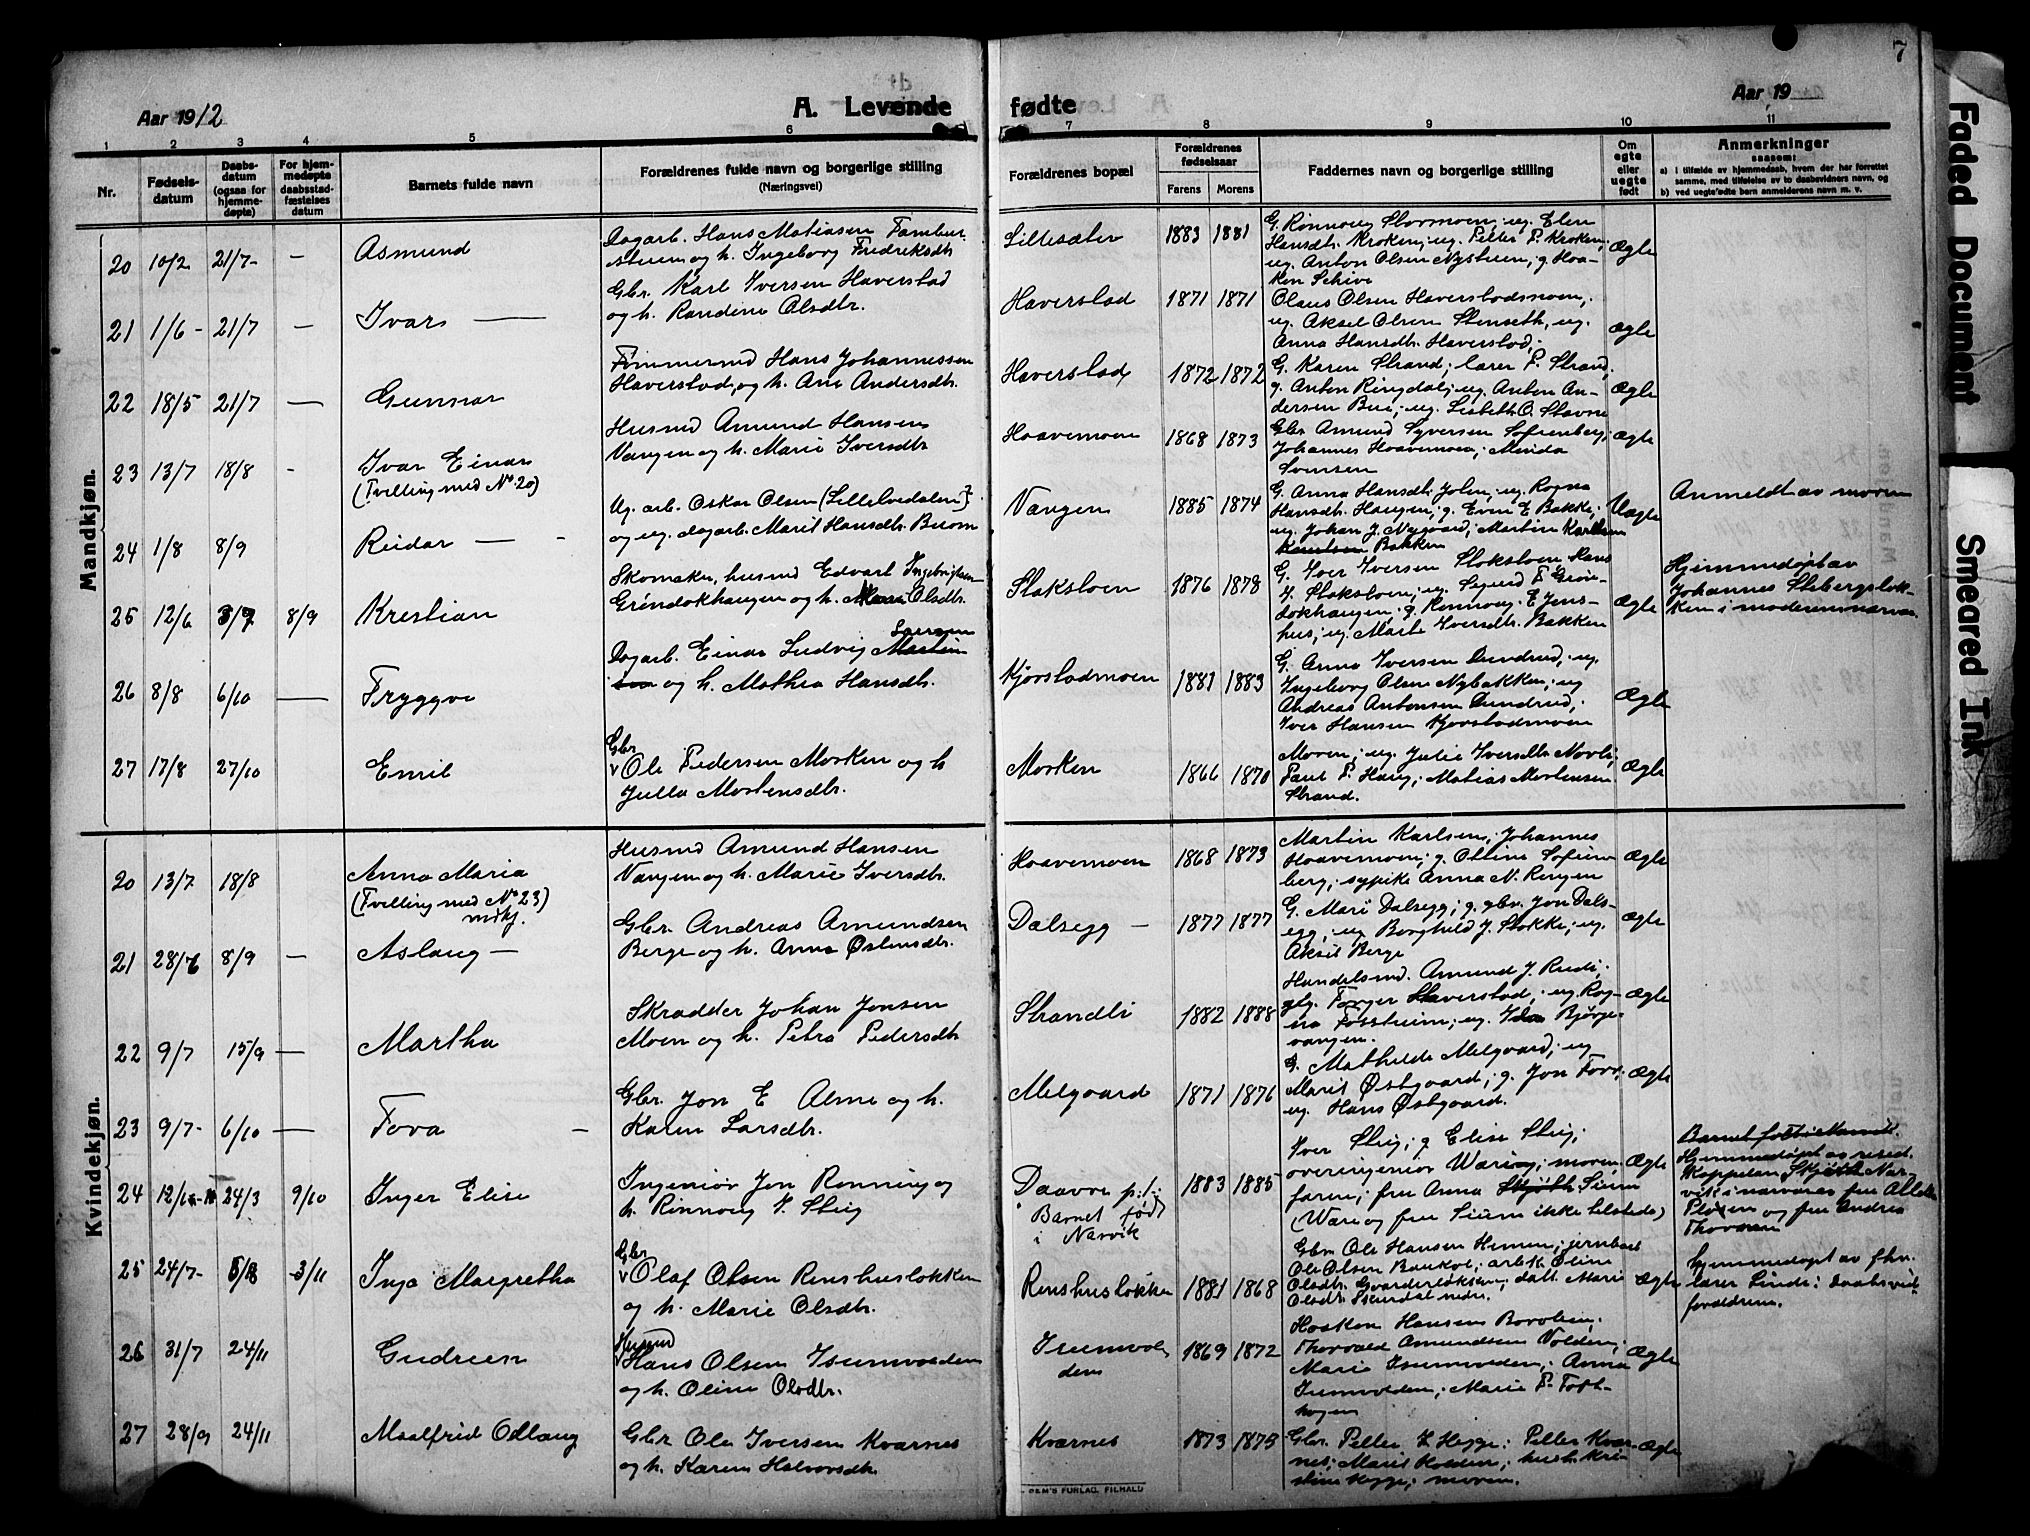 7
Aar 1912
A. Levende fødte
Aar 19
1 2 3 4 5 6 7 8 9 10 11
Nr.
Fødsels-
datum
Daabs-
datum
(ogsaa for
hjemme-
døpte)
For hjem-
medøpte
daabsstad-
fæstelses
datum
Barnets fulde navn
Forældrenes fulde navn og borgerlige stilling
(Næringsvei)
Forældrenes bopæl
Forældrenes
fødselsaar
Farens Morens
Faddernes navn og borgerlig stilling
Om
egte
eller
uegte
født
Anmerkninger
saasom:
a) i tilfælde av hjemmedaab, hvem der har forrettet
samme, med tilføielse av to daabsvidners navn, og
b) ved uegte fødte børn anmelderens navn m. v.
Mandkjøn.
20 10/2 21/7 — Asmund
Dagarb. Hans Matiasen Tambur-
stuen og h. Ingeborg Fredriksdtr.
Lillesæter 1883 1881
G. Rønnoug Stormoen; ug. Elen
Hansdtr. Kroken; ug. Petter P. Kroken;
ug. Anton Olsen Nystuen; g. Haa-
ken Schive
Ægte
21 1/6 21/7 — Ivar
Gbr. Karl Iversen Haverstad
og h. Randine Olsdtr.
Haverstad 1871 1871
Olaus Olsen Haverstadmoen;
ug. Aksel Olsen Stenseth, ug.
Anna Hansdtr. Haverstad;
Ægte
22 18/5 21/7 — Gunnar
Tømmermd Hans Johannessen
Haverstad, og h. Ane Andersdtr.
Haverstad 1872 1872
G. Karen Strand; lærer P. Strand,
g. Anton Ringdal; ug. Anton An-
dersen Bue; ug. Lisbeth O. Stavne
Ægte
23 13/7 18/8 - Ivar Einar
(Tvilling med No. 20)
Husmd Amund Hansen
Vangen og h. Marie Iversdtr.
Haavemoen 1868 1873
Gbr. Amund Syversen Sofienberg,
Johannes Haavemoen; Minda
Svensen
Ægte
24 1/8 8/9 Reidar
Ug. arb. Oskar Olsen (Lillelvedalen)
og ug. dagarb. Marit Hansdtr. Buom
Vangen 1885 1874
G. Anna Hansdtr. Jølen; ug. Ragna
Hansdtr. Haugen; g. Even E. Bakke;
ug. Johan J. Nygaard; Martin Karlsen
Knutsen Bakken
Uægte
Anmeldt av moren
25 12/6 3/7 8/9 Kristian
Skomaker, husmd Edvart Ingebrigtsen
Grøndokhaugen og h. Mari Olsdtr.
Slaksloen 1876 1878
G. Iver Iversen Slaksloen, Hans
I. Slaksloen; ug. Sigurd P. Grøn-
dokhaugen; g. Rønnoug E. Jens-
hus; ug. Marte Iversdtr. Bakken
Ægte
Hjemmedøpt av
Johannes Stebergsløk-
ken i moderens nærvær
26 8/8 6/10 — Tryggve
Dagarb. Einar Ludvig Larsen
og h. Mathea Hansdtr.
Kjørstadmoen 1881 1883
G. Anna Iversen Dundrud; ug.
Ingeborg Olsen Nybakken; ug
Andreas Antonsen Dundrud;
Iver Hansen Kjørstadmoen
Ægte
27 17/8 27/10 Emil
Gbr.
Ole Pedersen Morken og h
Julla Mortensdtr.
Morken 1866 1870
Moren; ug. Julie Iversdtr. Norli;
Paul P. Haug; Matias Mortensen
Strand.
Ægte
Kvindekjøn.
20 13/7 18/8 Anna Maria
(Tvilling med No 23)
mdkj.
Husmd Amund Hansen
Vangen og h. Marie Iversdtr.
Haavemoen 1868 1873
Martin Karlsen; Johannes
Haavemoen; g. Oline Sofien-
berg; sypike Anna N. Ringen
Ægte
21 28/7 8/9 — Aslaug —
Gbr. Andreas Amundsen
Berge og h. Anna Østensdtr.
Dalsegg — 1877 1877
G. Mari Dalsegg; g. gbr. Jon Dals-
egg; ug Borghild J. Stokke; ug.
Aksel Berge
Ægte
22 9/7 15/9 — Martha
Skrædder Johan Jonsen
Moen og h. Petra Pedersdtr.
Strandli 1882 1888
Handelsmd. Amund J. Rudi;
Torger Haverstad; ug. Rag-
na Fossheim; ug. Ida Bjørge-
vangen.
Ægte
23 9/7 6/10 — Tova —
Gbr. Jon E. Alme og h.
Karen Larsdtr.
Melgaard 1871 1876
G. Mathilde Melgaard; ug
Marit Østgaard; g. Jon Torv,
ug. Hans Østgaard.
Ægte
24 24/3 9/10 Inger Elise
Ingeniør Jon Rønning og
h. Rønnoug I. Stig
Daavre p.t.
Barnet født
i Narvik
1883 1885
Iver Stig; g Elise Stig;
overingeniør Waring; moren,
faren; fru Anna Sium
(Ware og fru Sium ikke tilstede)
Ægte
Barnet født i Narvik.
Hjemmedøpt av resid.
Kappelan Skjøth Nar-
vik i nærvær av fru
og fru Andrea
Thorsen
25 24/7 5/8 3/11 Inga Margretha
Gbr
Olaf Olsen Renshusløkken
og h. Marie Olsdtr.
Renshusløkken 1881 1868
Gbr. Ole Hansen Hemen; jernbarb
Ole Olsen Baukol; arb.k. Oline
Olsdtr. Gvarderløkken; datt. Marie
Olsdtr. Skurdal nedre.
Ægte
Hjemmedøpt av fhv.
lærer Linde; daabsvid.
forældrene.
26 31/7 24/11 Gudrun
Husmd
Hans Olsen Isumvolden
og h. Oline Olsdtr.
Isumvol-
den
1869 1872
Haakon Hansen Borolien;
Thorvald Amundsen Volden;
Marie Isumvolden; Anna
Isumvolden; Marie P. Toft-
hagen
Ægte
27 28/9 24/11 Maalfrid Odlaug
Gbr. Ole Iversen Kvarnes
og h. Karen Halvorsdtr.
Kvarnes 1873 1875
Gbr. Petter I. Hegge; Petter Kvar-
nes; Marit Holden; hush. Kri-
stine Hegge; moren.
Ægte
FORLAG, FILHALD
Faded Document
Smeared Ink